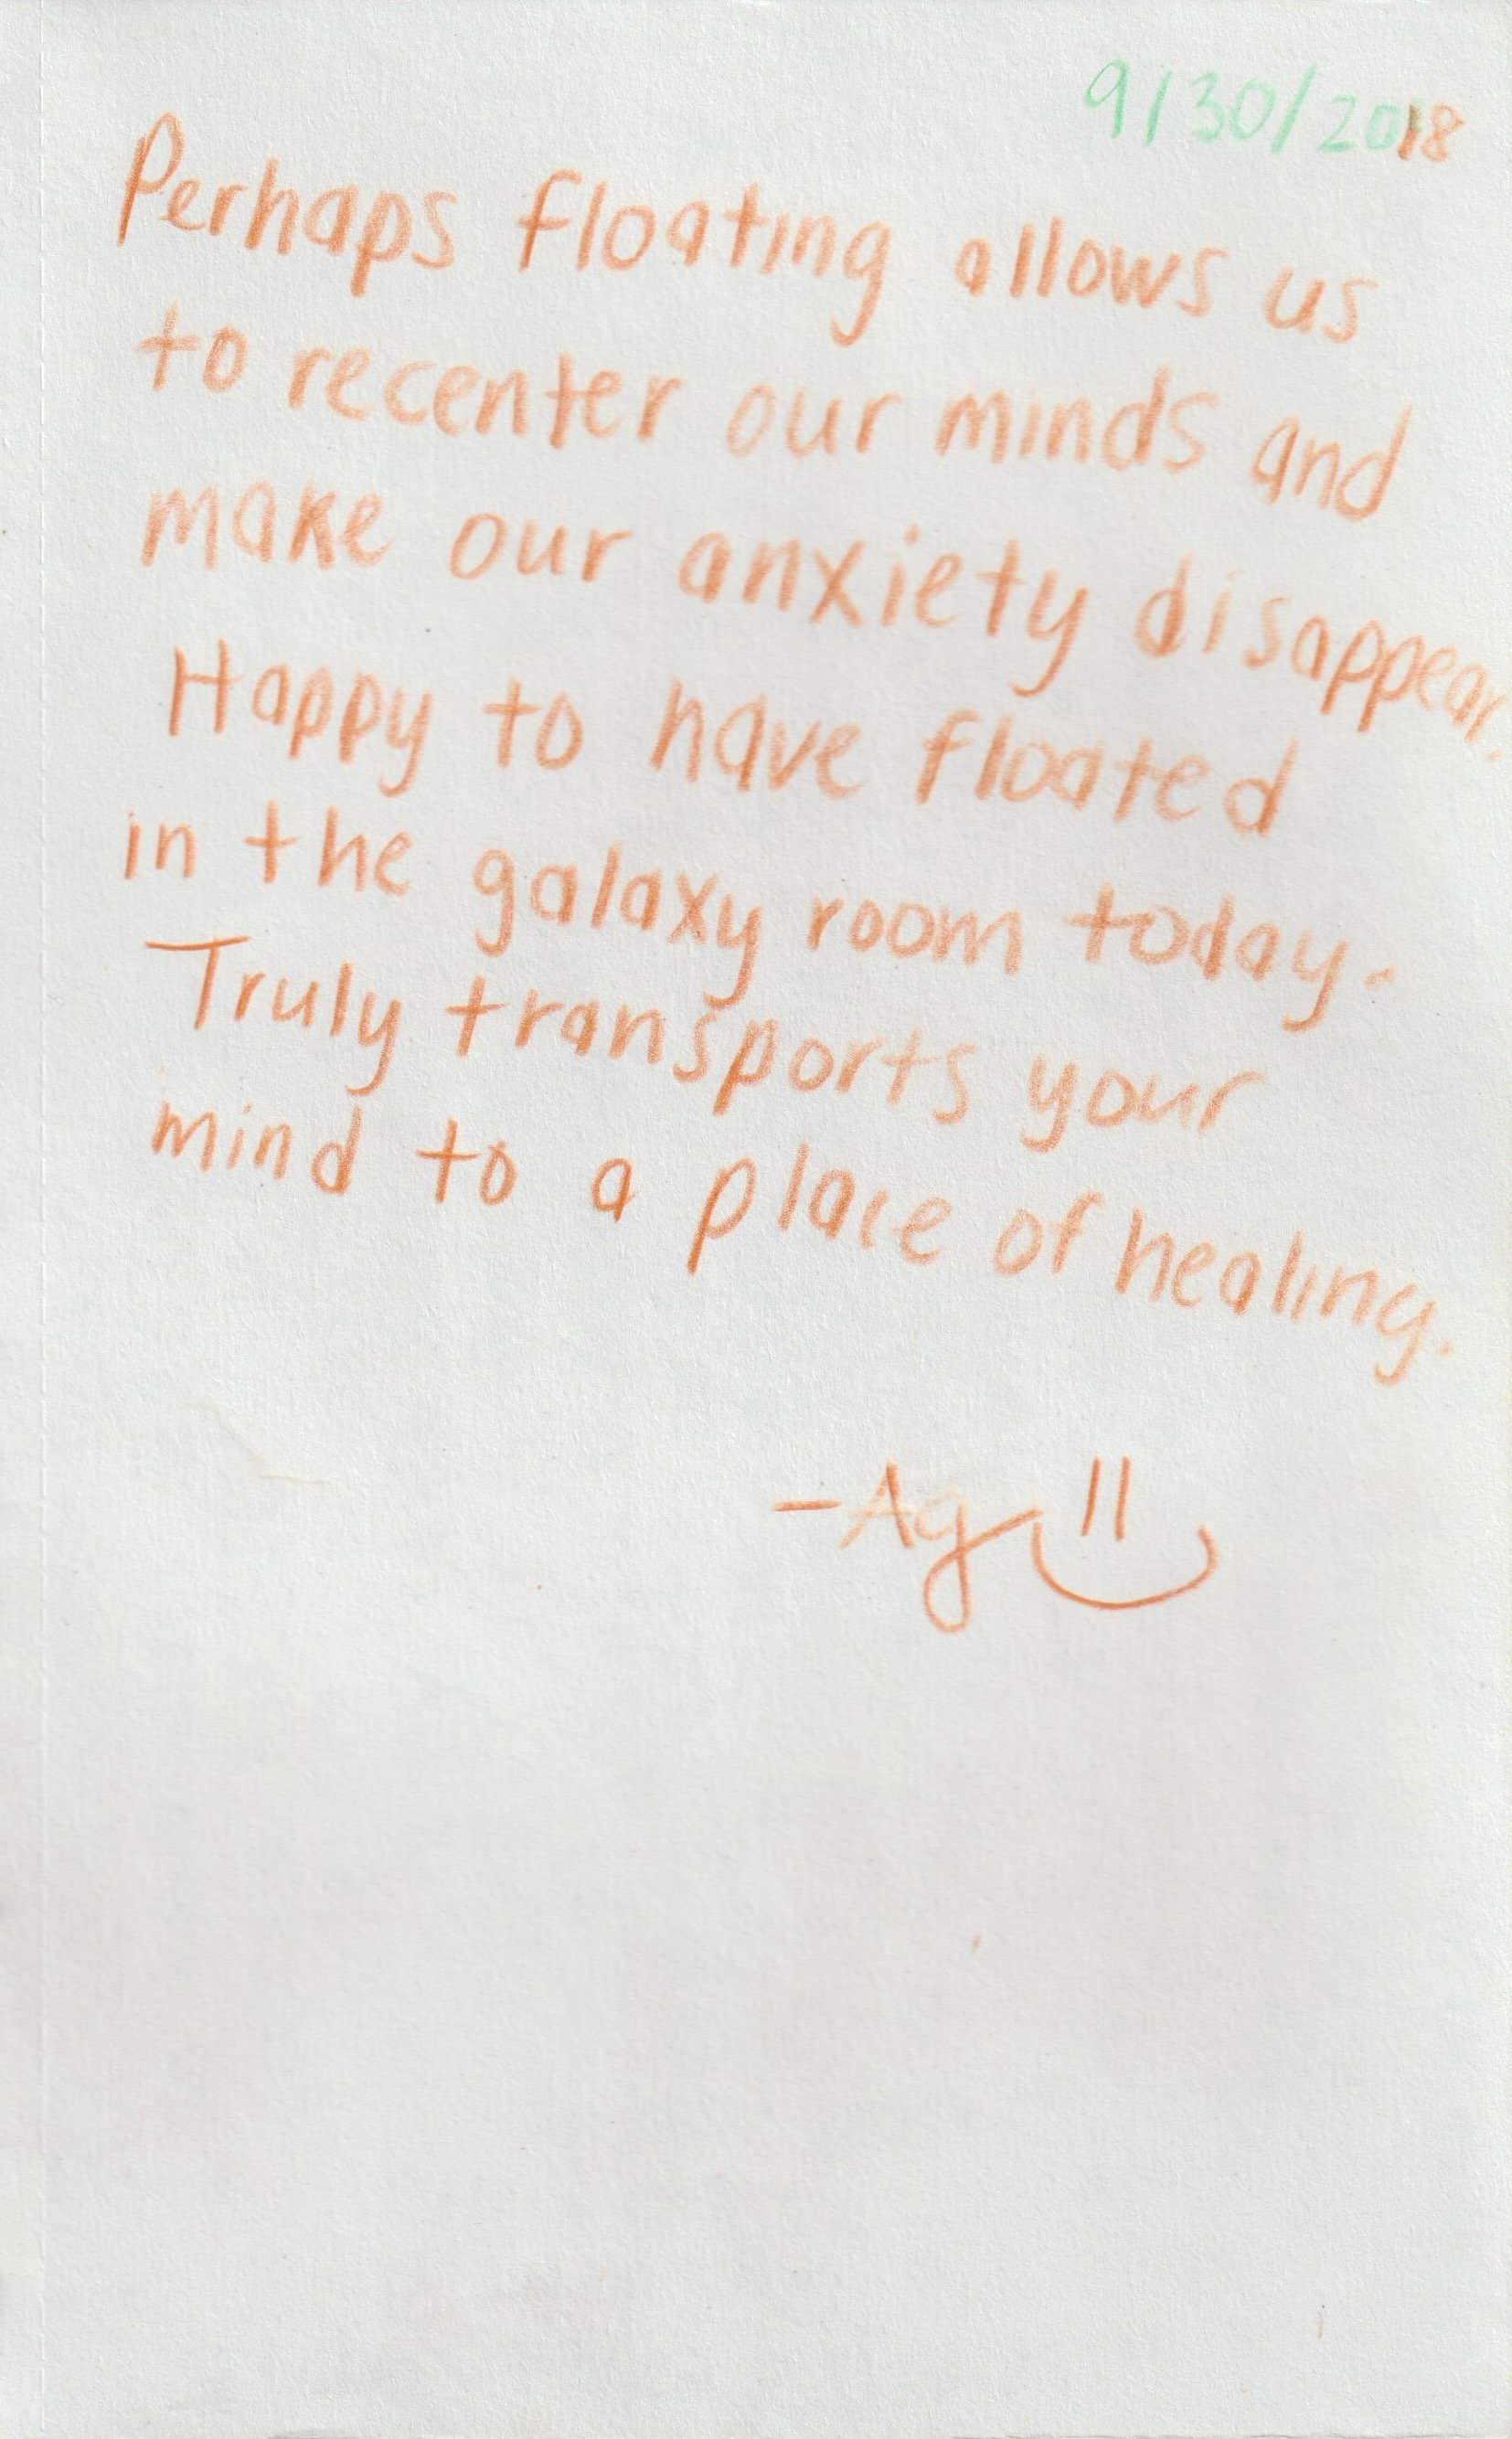 9/30/2018
Perhaps floating allows us
to recenter our minds and
make our anxiety disappear.
Happy to have floated
in the galaxy room today.
Truly transports your
mind to a place of healing.
-Ag